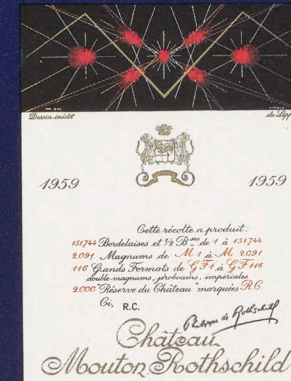 Dessin inédit de Lipp
1959 1959
Cette récolte a produit:
151744 Bordelaises et ½ Bses de 1 à 151744
2091 Magnums de M 1 à M 2091
116 Grands Formats de GF1 à GF116
double-magnums, jéroboams, impériales
2000 "Réserve du Château" marquées R.C.
Ci, R.C.
Philippe de Rothschild
Château
Mouton Rothschild